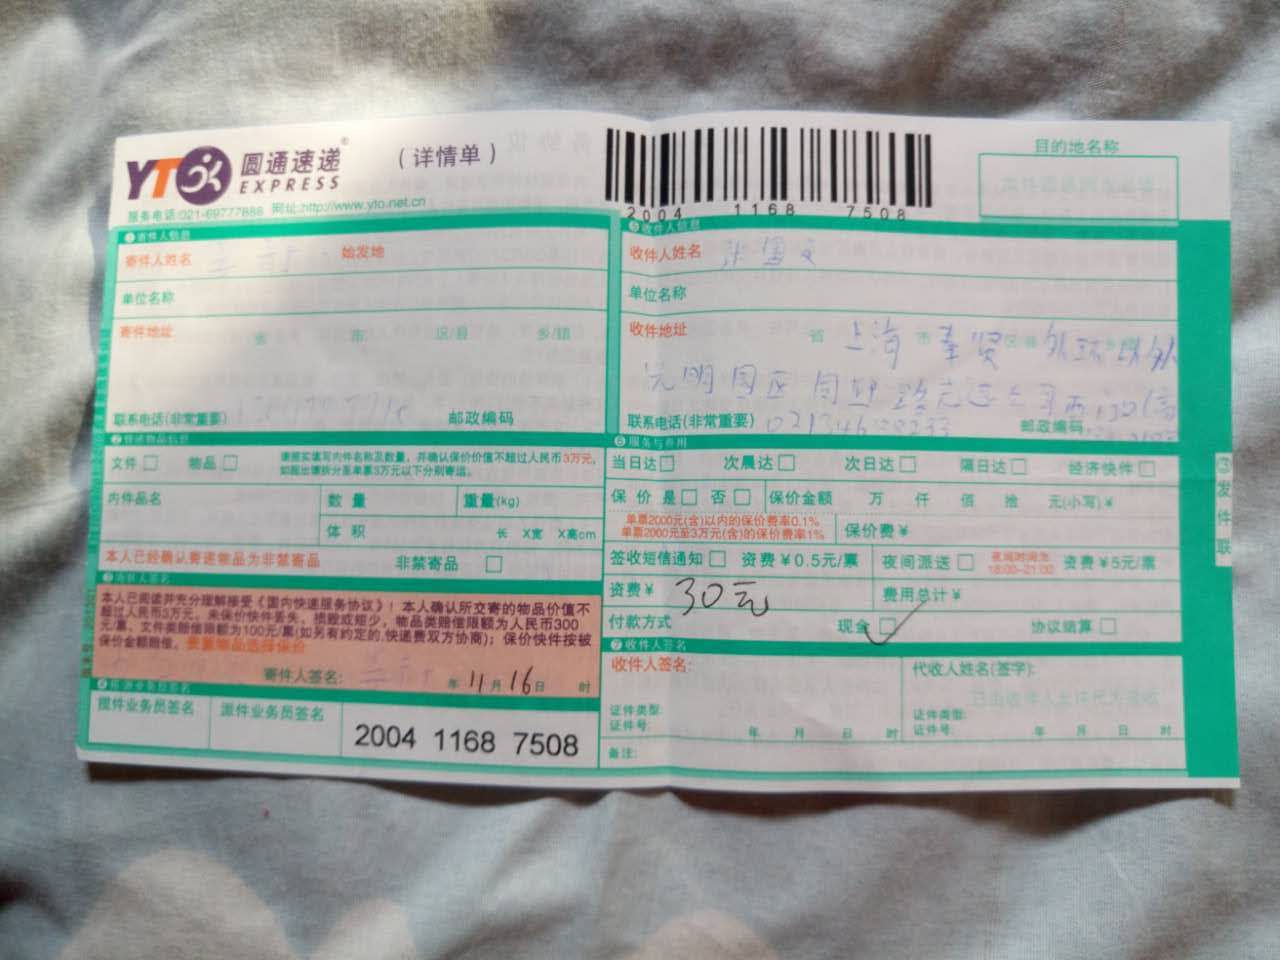 YTO 圆通速递®
EXPRESS
(详情单)
服务电话:021-69777888 网址:http://www.yto.net.cn
2004 1168 7508
目的地名称
寄件人信息
寄件人姓名 始发地
单位名称
寄件地址 省 市 区/县 乡/镇
联系电话(非常重要) 邮政编码
收件人信息
收件人姓名
单位名称
收件地址 省 上海 市 奉贤
联系电话(非常重要) 邮政编码
文件 物品 请据实填写内件名称及数量,并确认保价价值不超过人民币3万元,
如超出请拆分至单票3万元以下分别寄运。
内件品名 数量 重量(kg)
体积 长 X宽 X高cm
本人已经确认寄递物品为非禁寄品 非禁寄品
寄件人签名
本人已阅读并充分理解接受《国内快递服务协议》!本人确认所交寄的物品价值不
超过人民币3万元。未保价快件丢失、损毁或短少,物品类赔偿限额为人民币300
元/票,文件类赔偿限额为100元/票(如另有约定的,快递费双方协商);保价快件按被
保价金额赔偿。贵重物品选择保价
寄件人签名: 年 11 月 16 日 时
揽件业务员签名 派件业务员签名 2004 1168 7508
服务与费用
当日达 次晨达 次日达 隔日达 经济快件
保价 是 否 保价金额 万 仟 佰 拾 元(小写)¥
单票2000元(含)以内的保价费率0.1%
单票2000元至3万元(含)的保价费率1% 保价费¥
签收短信通知 资费¥0.5元/票 夜间派送 夜间时间为
18:00-21:00 资费¥5元/票
资费¥ 30元 费用总计¥
付款方式 现金 ✓ 协议结算
收件人签名
收件人签名: 代收人姓名(签字):
证件类型: 证件类型:
证件号: 年 月 日 时 证件号: 年 月 日 时
备注:
③发件联